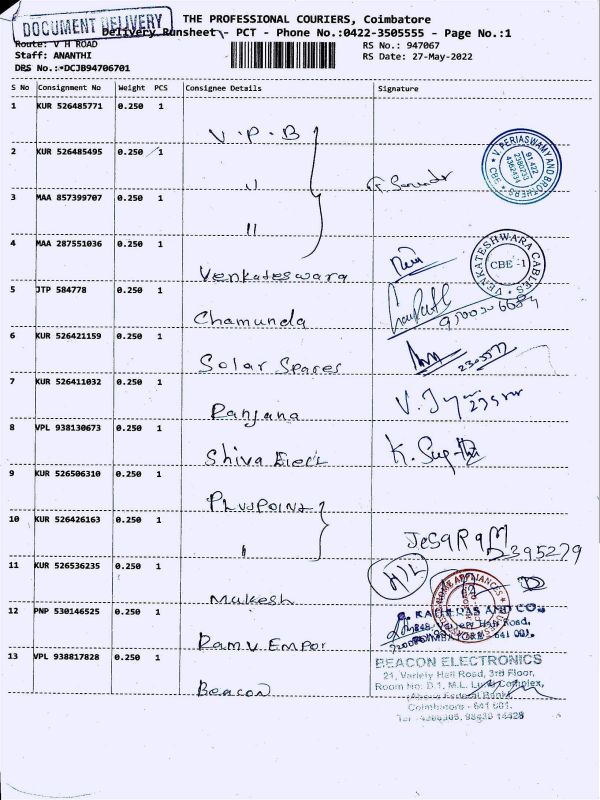 DOCUMENT DELIVERY
THE PROFESSIONAL COURIERS, Coimbatore
Delivery Runsheet - PCT - Phone No.:0422-3505555 - Page No.:1
Route: V H ROAD
Staff: ANANTHI
DRS No.:*DCJB94706701
RS No.: 947067
RS Date: 27-May-2022
S No Consignment No Weight PCS Consignee Details Signature
1 KUR 526485771 0.250 1 V.P.B
2 KUR 526485495 0.250 1 "
V. PERIASWAMY AND BROTHERS
CBE
3 MAA 857399707 0.250 1 "
4 MAA 287551036 0.250 1 Venkadeswara
VENKATESHWARA CABLES
CBE -1
5 JTP 584778 0.250 1 Chamunda
6 KUR 526421159 0.250 1 Solar Spares
7 KUR 526411032 0.250 1 Ranjana
8 VPL 938130673 0.250 1 Shiva Elect
9 KUR 526506310 0.250 1 PLUSPOINT
10 KUR 526426163 0.250 1 "
JesaRaM
2395279
11 KUR 526536235 0.250 1 Mukesh
H/L
HOME APPLIANCES
12 PNP 530146525 0.250 1 Ram V. Empor
AND CO.,
13 VPL 938817828 0.250 1 Beacon
BEACON ELECTRONICS
21, Variety Hall Road, 3rd Floor,
Room No. D.1, M.L. Complex,
Above Federal Bank
Coimbatore - 641 001.